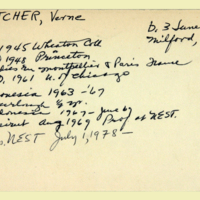 TCHER, Verne
b. 3 June
Milford,
1945 Wheaton Coll
1948 Princeton
Montpellier & Paris France
D. 1961 U. of Chicago
onesia 1963-'67
onesia 1967- June 69
Aug 1969 Prof at NEST.
NEST July 1, 1978 -